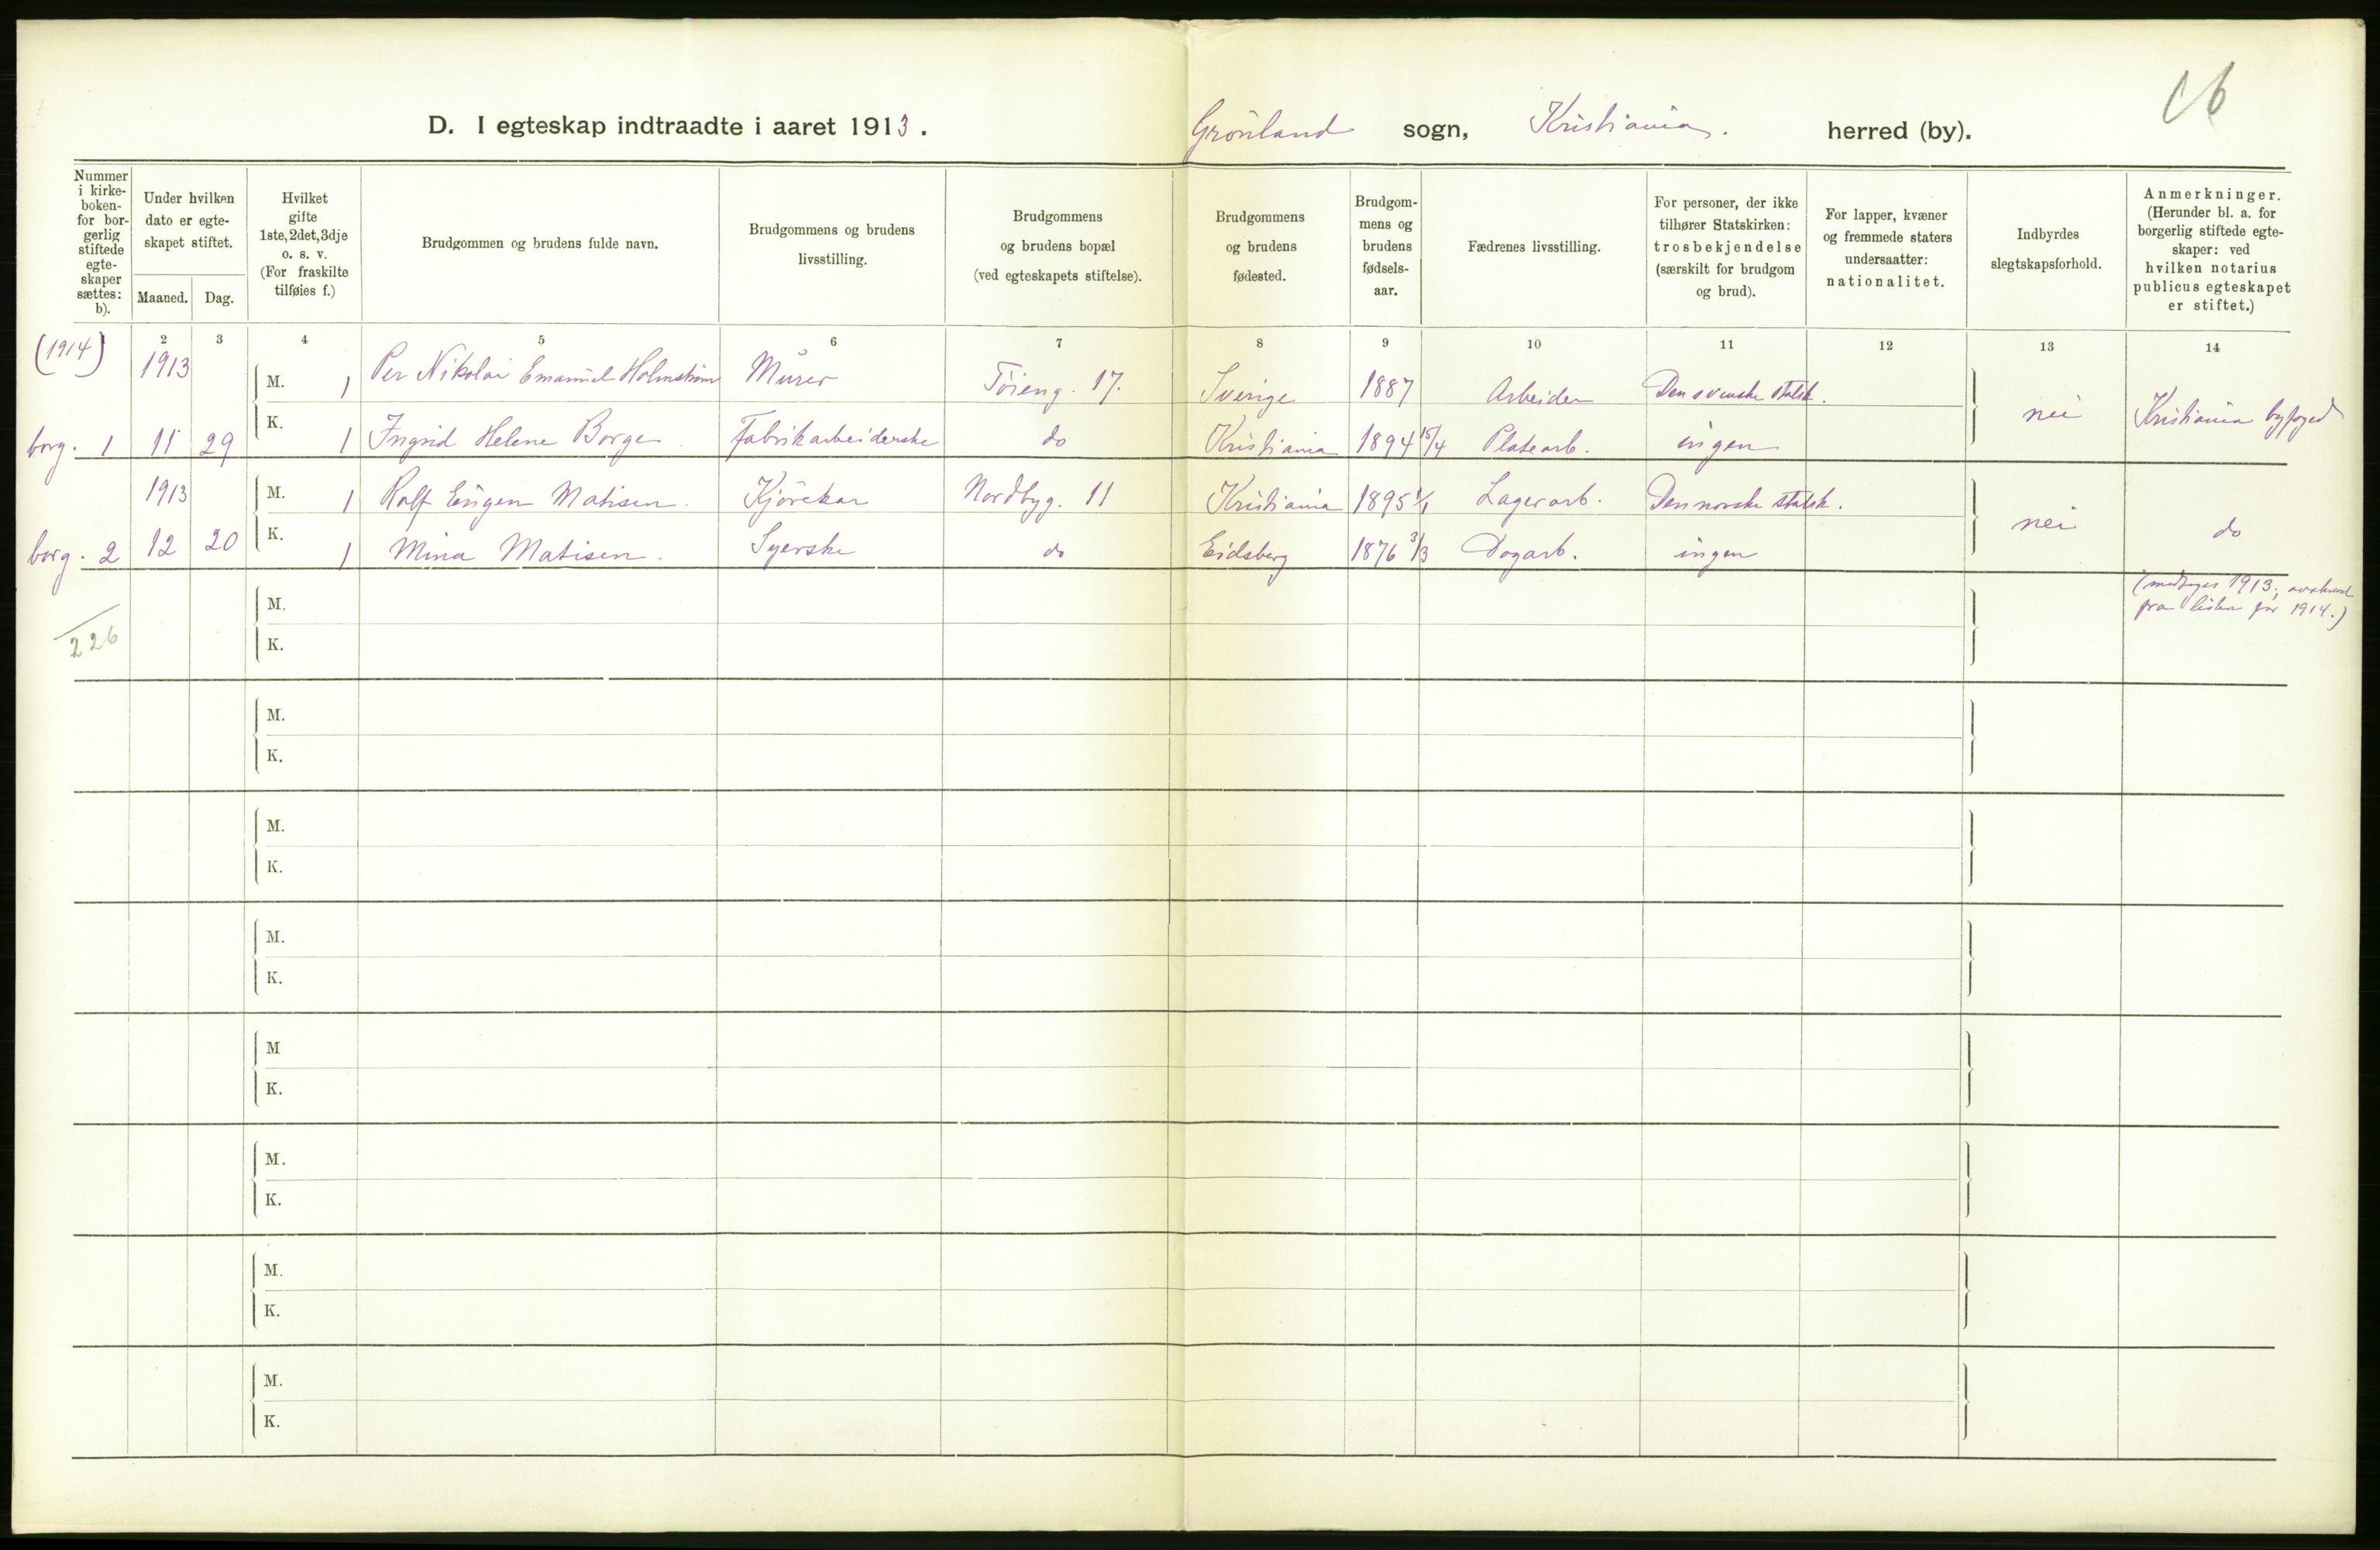 16
D. I egteskap indtraadte i aaret 1913.
Grønland sogn, Kristiania. herred (by).
Nummer i kirke- boken- for bor- gerlig stiftede egte- skaper sættes: b).
Under hvilken dato er egte- skapet stiftet.
Maaned. Dag.
Hvilket gifte 1ste, 2det, 3dje o. s. v. (For fraskilte tilføies f.)
Brudgommen og brudens fulde navn.
Brudgommens og brudens livsstilling.
Brudgommens og brudens bopæl (ved egteskapets stiftelse).
Brudgommens og brudens fødested.
Brudgom- mens og brudens fødsels- aar.
Fædrenes livsstilling.
For personer, der ikke tilhører Statskirken: trosbekjendelse (særskilt for brudgom og brud).
For lapper, kvæner og fremmede staters undersaatter: nationalitet.
Indbyrdes slegtskapsforhold.
Anmerkninger. (Herunder bl. a. for borgerlig stiftede egte- skaper: ved hvilken notarius publicus egteskapet er stiftet.)
2 3 4 5 6 7 8 9 10 11 12 13 14
(1914) 1913 M. 1 Per Nikolai Emanuel Holmstrøm Murer Tøieng. 17. Sverige 1887 Arbeider Den svenske statsk.
borg. 1 11 29 K. 1 Ingrid Helene Borge Fabrikarbeiderske do Kristiania 1894 15/4 Platearb. ingen nei Kristiania byfoged
1913 M. 1 Rolf Eugen Matisen. Kjørekar Nordbyg. 11 Kristiania 1895 1/1 Lagerarb. Den norske statsk.
borg. 2 12 20 K. 1 Mina Matisen. Syerske do Eidsberg 1876 3/3 Dagarb. ingen nei do
(medtages 1913;
fra listen for 1914.)
226
M.
K.
M.
K.
M.
K.
M.
K.
M
K.
M.
K.
M.
K.
M.
K.